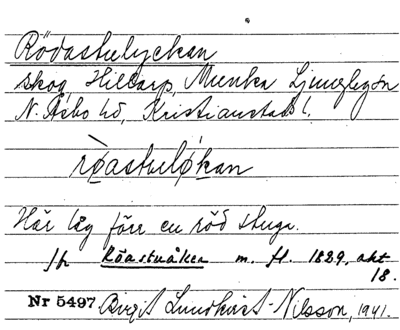 Rödastulyckan
skog, Hillarp, Munka Ljungby sn
N. Åsbo hd, Kristianstads l.
röastuløkan
Här låg förr en röd stuga.
Jfr Röastuåker m. fl. 1829, akt
18.
Nr 5497 Birgit Lundkvist-Nilsson, 1941.